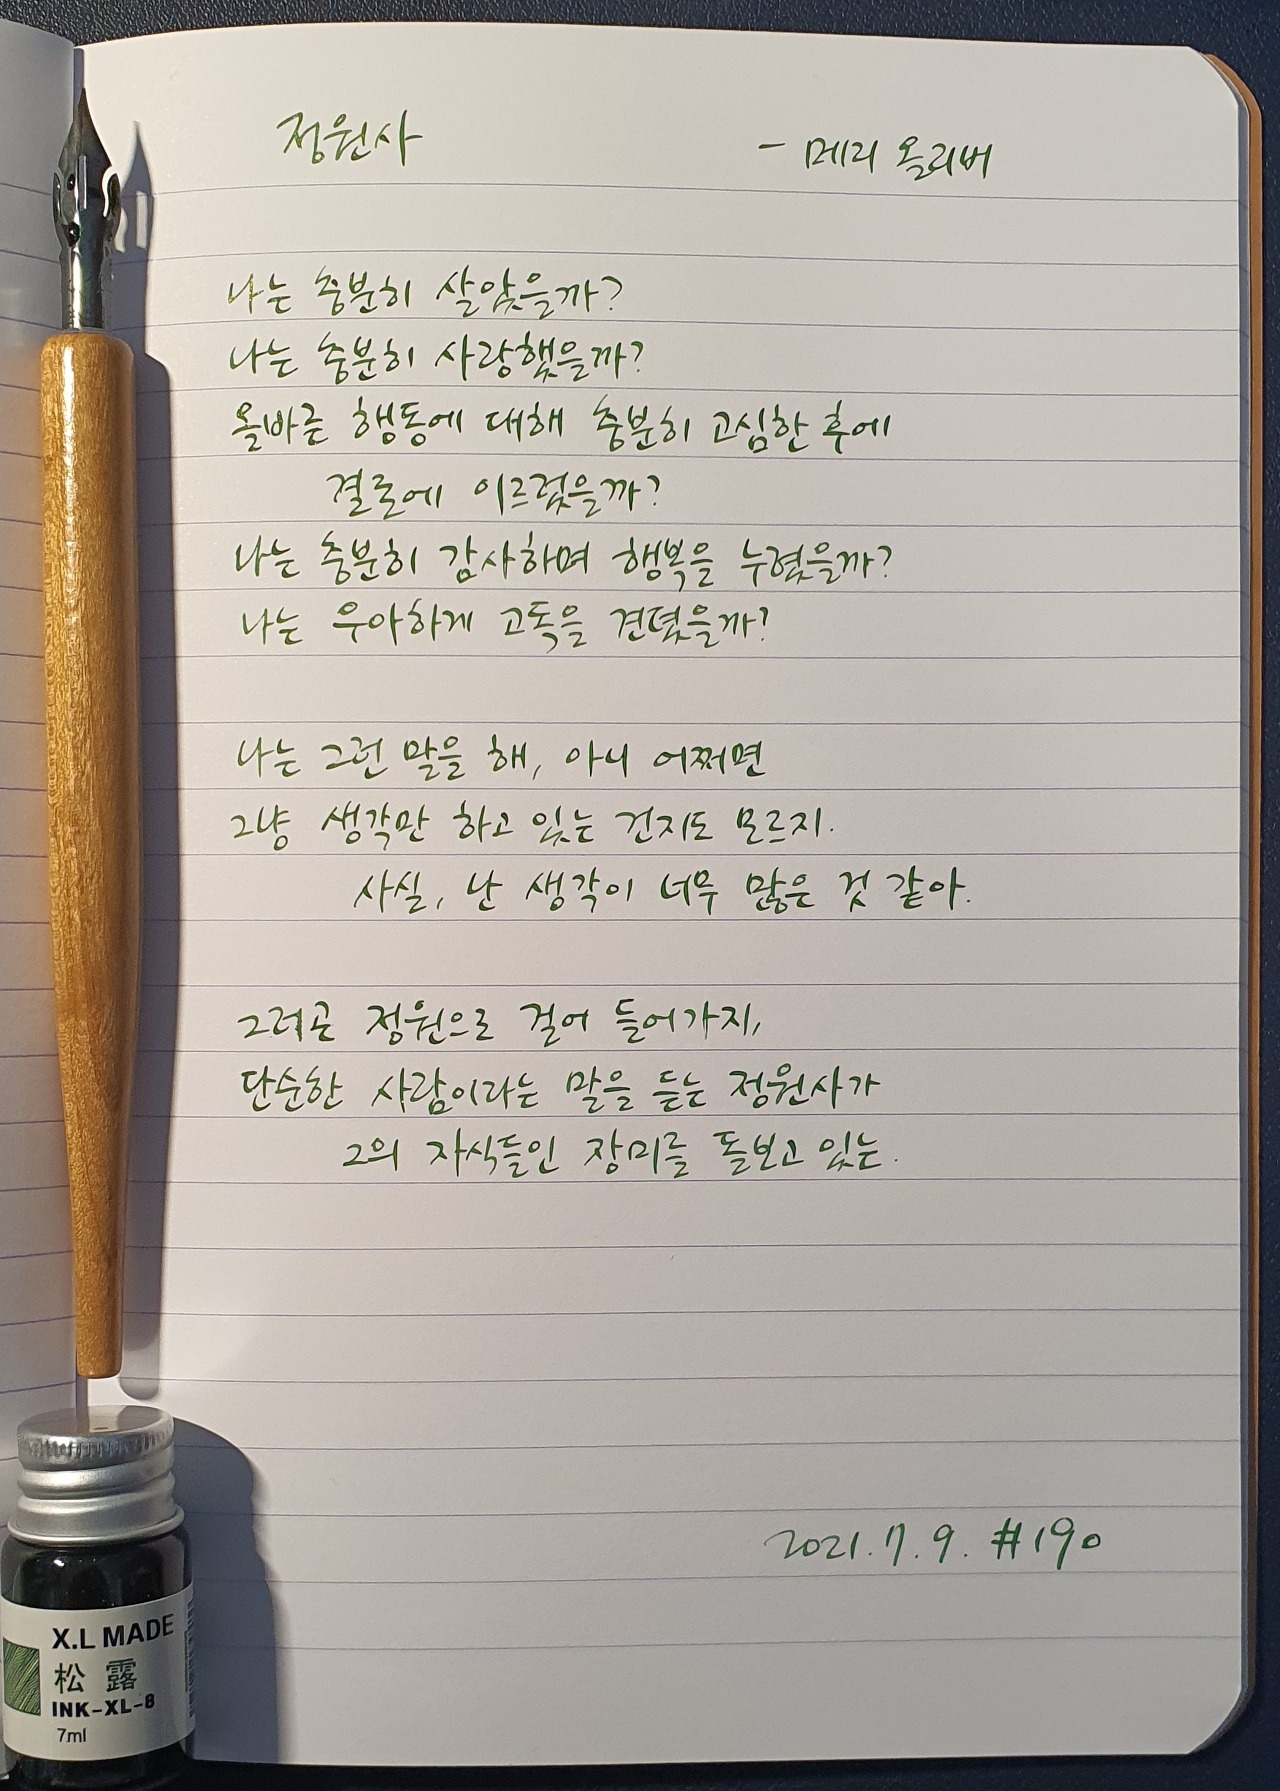 정원사 - 메리 올리버
나는 충분히 살았을까?
나는 충분히 사랑했을까?
올바른 행동에 대해 충분히 고심한 후에
결론에 이르렀을까?
나는 충분히 감사하며 행복을 누렸을까?
나는 우아하게 고독을 견뎠을까?
나는 그런 말을 해, 아니 어쩌면
그냥 생각만 하고 있는 건지도 모르지.
사실, 난 생각이 너무 많은 것 같아.
그러곤 정원으로 걸어 들어가지,
단순한 사람이라는 말을 듣는 정원사가
그의 자식들인 장미를 돌보고 있는.
2021.7.9. #190
X.L MADE
松露
INK-XL-8
7ml